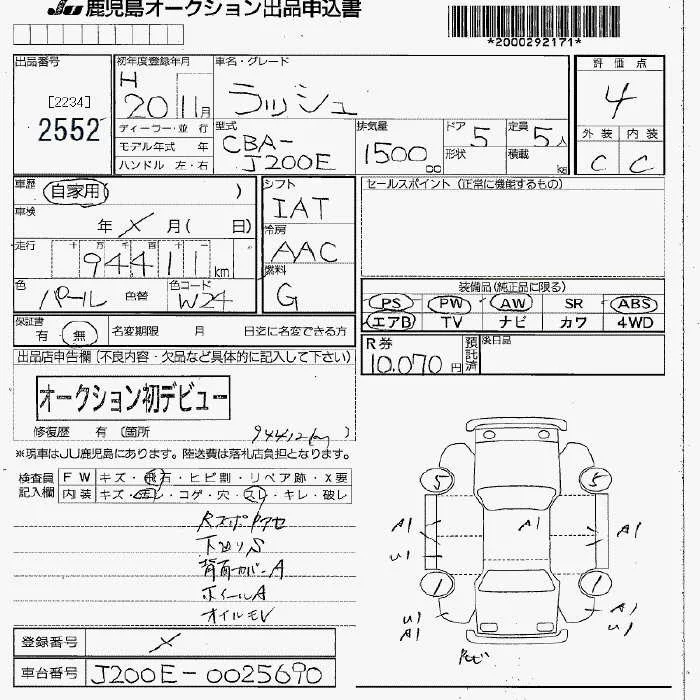 JU 鹿児島オークション出品申込書
*2000292171*
出品番号
[2234]
2552
初年度登録年月
H 20 11月
ディーラー・並 行
モデル年式 年
ハンドル 左・右
車名・グレード
ラッシュ
型式
CBA-
J200E
排気量
1500 cc
ドア 5
形状
定員 5人
積載 kg
評価点
4
外装 内装
C C
車歴
自家用 )
車検
年 × 月( 日)
走行
十 万 千 百 十
94411 km
色 パール 色替
色コード W24
シフト
IAT
冷房
AAC
燃料
G
セールスポイント (正常に機能するもの)
装備品(純正品に限る)
PS PW AW SR ABS
エアB TV ナビ カワ 4WD
保証書
有 無
名変期限 月 日迄に名変できる方
R券
10,070 円
預託済
後日品
出品店申告欄 (不良内容・欠品など具体的に記入して下さい)
オークション初デビュー
修復歴 有 〔箇所 )
94412km
※現車はJU鹿児島にあります。陸送費は落札店負担となります。
検査員
記入欄
FW キズ・飛石・ヒビ割・リペア跡・X要
内装 キズ・ヨゴレ・コゲ・穴・スレ・キレ・破レ
下廻りS
背面カバーA
ホイールA
オイルモレ
5 5
A1 A1 A1
U1
1 1
U1 A1
A1 U1
登録番号 ×
車台番号 J200E-0025690